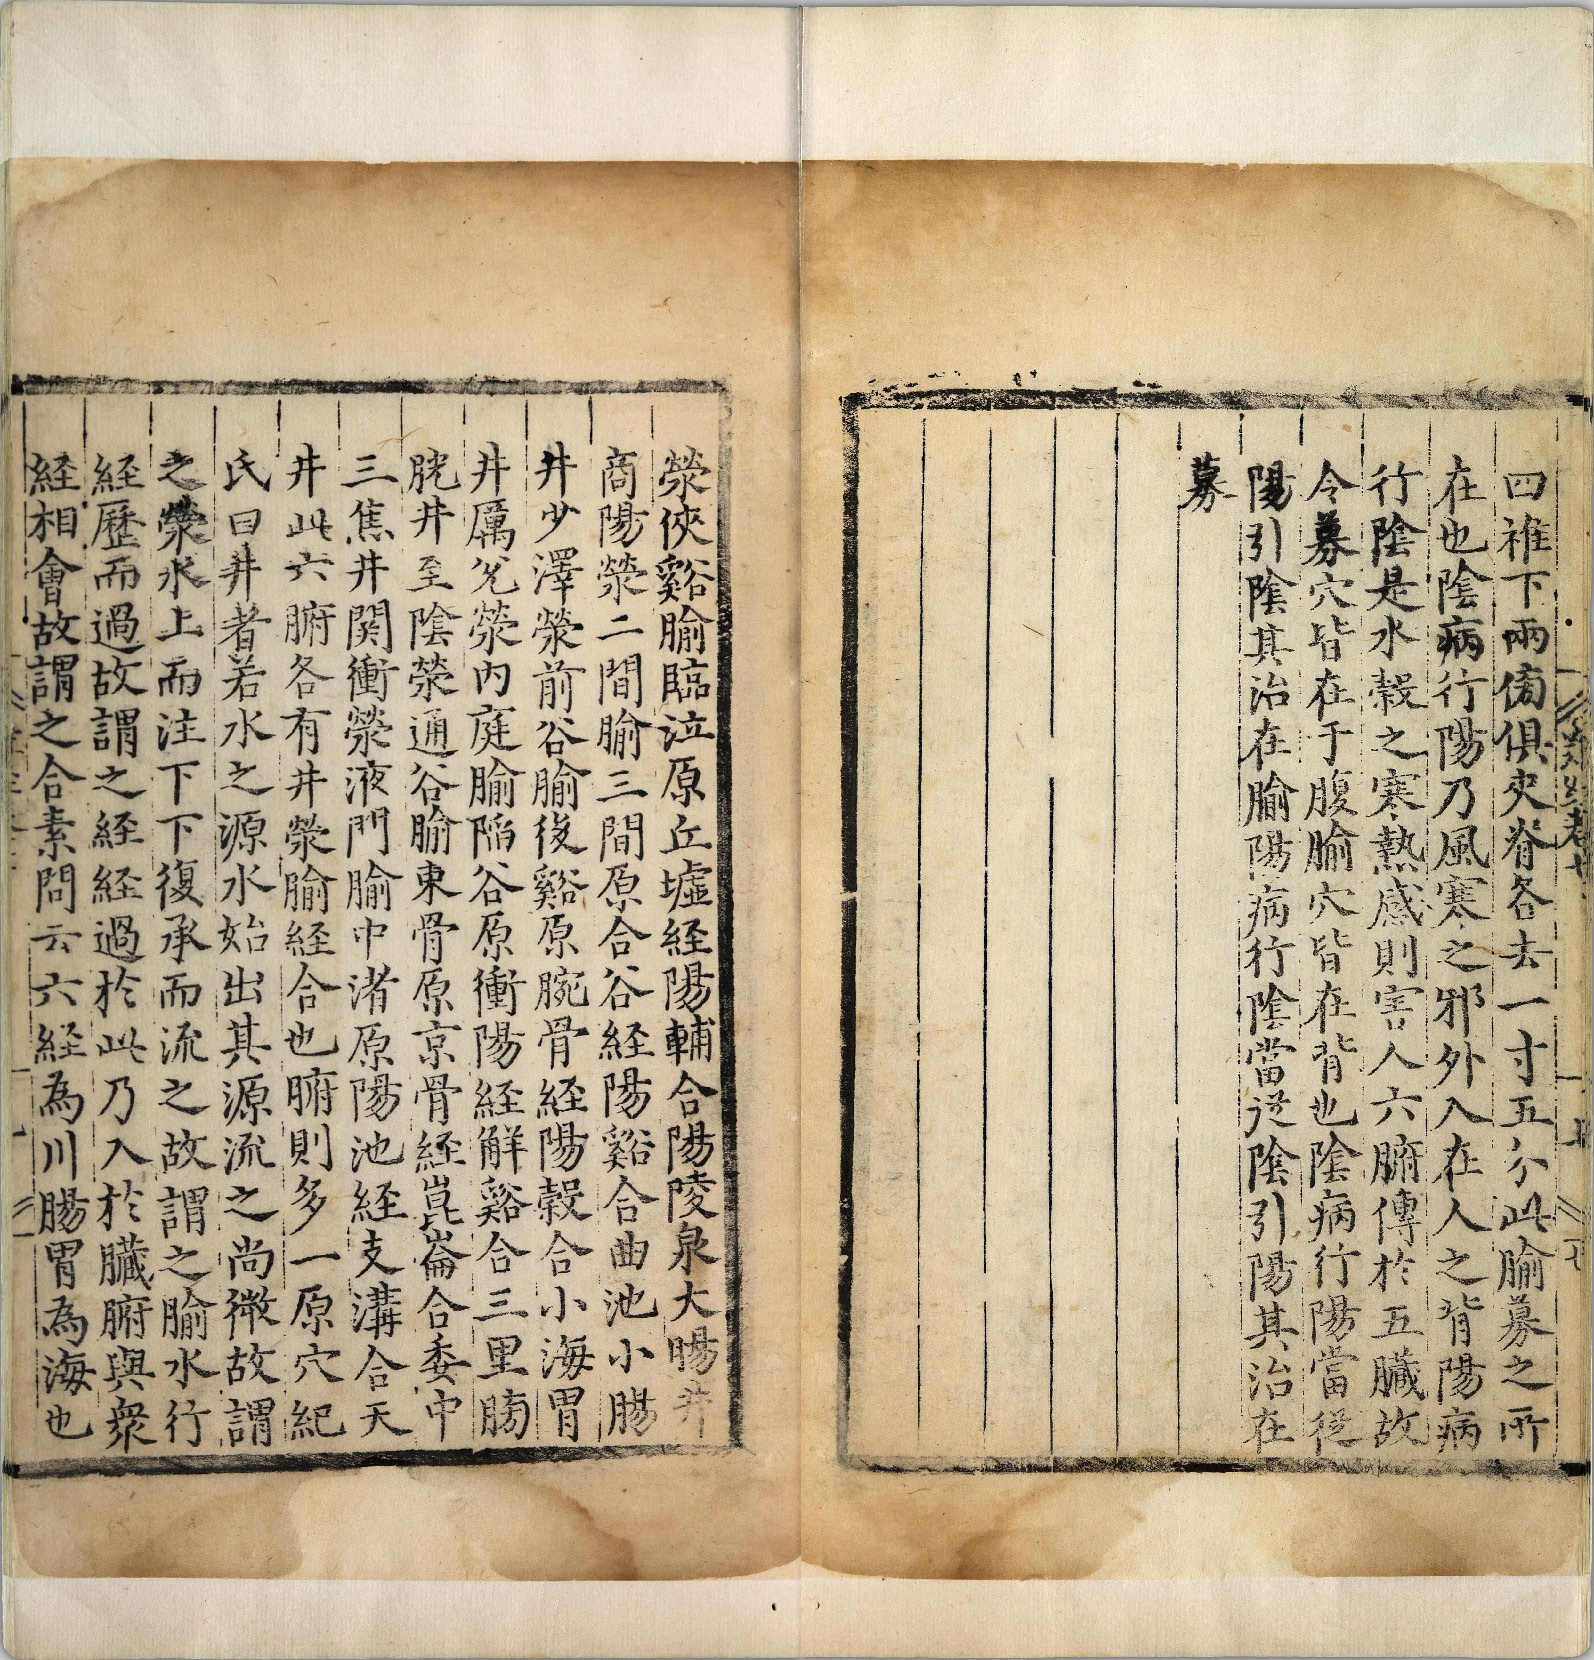 四椎下兩傍俱夾脊各去一寸五分此腧募之所
在也陰病行陽乃風寒之邪外入在人之背陽病
行陰是水穀之寒熱感則害人六腑傳於五臟故
令募穴皆在于腹腧穴皆在背也陰病行陽當從
陽引陰其治在腧陽病行陰當從陰引陽其治在
募
滎俠谿腧臨泣原丘墟経陽輔合陽陵泉大腸井
商陽滎二間腧三間原合谷経陽谿合曲池小腸
井少澤滎前谷腧後谿原腕骨経陽穀合小海胃
井厲兊滎内庭腧陷谷原衝陽経解谿合三里膀
胱井至陰滎通谷腧東骨原京骨経崑崙合委中
三焦井関衝滎液門腧中渚原陽池経支溝合天
井此六腑各有井滎腧経合也腑則多一原穴紀
氏曰井者若水之源水始出其源流之尚微故謂
之滎水上而注下下復承而流之故謂之腧水行
経歷而過故謂之経経過於此乃入於臟腑與衆
経相會故謂之合素問云六経為川腸胃為海也